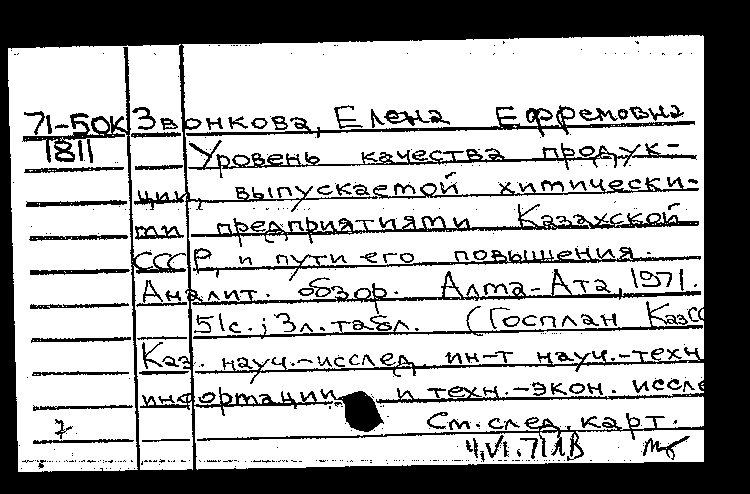 71-5ОК Звонкова, Елена Ефремовна
1811 Уровень качества продук-
ции, выпускаемой химически-
ми предприятиями Казахской
ССР, и пути его повышения.
Аналит. обзор. Алма-Ата, 1971.
51с.; 3л.табл. (Госплан КазСС
Каз. науч.-исслед. ин-т науч.-техн
информации и техн.-экон. иссле
См.след.карт.
4.VI.71 ЛВ